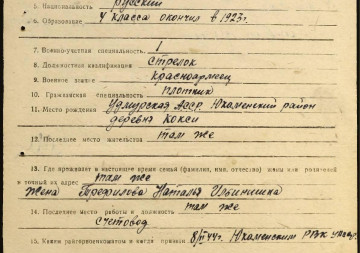 5. Национальность русский
6. Образование 4 класса окончил в 1923 г.
7. Военно-учетная специальность 1
8. Должностная квалификация стрелок
9. Военное звание Красноармеец
10. Гражданская специальность плотник
11. Место рождения Удмурская Асср. Юкаменский район
деревня Кокси
12. Последнее место жительства там же
13. Где проживает в настоящее время семья (фамилия, имя, отчество) жены или родителей
и точный их адрес там же
жена Трефилова Наталья Ильинишна
14. Последнее место работы и должность там же
счетовод
15. Каким райвоенкоматом и когда призван 8/II 44 г. Юкаменским РВК